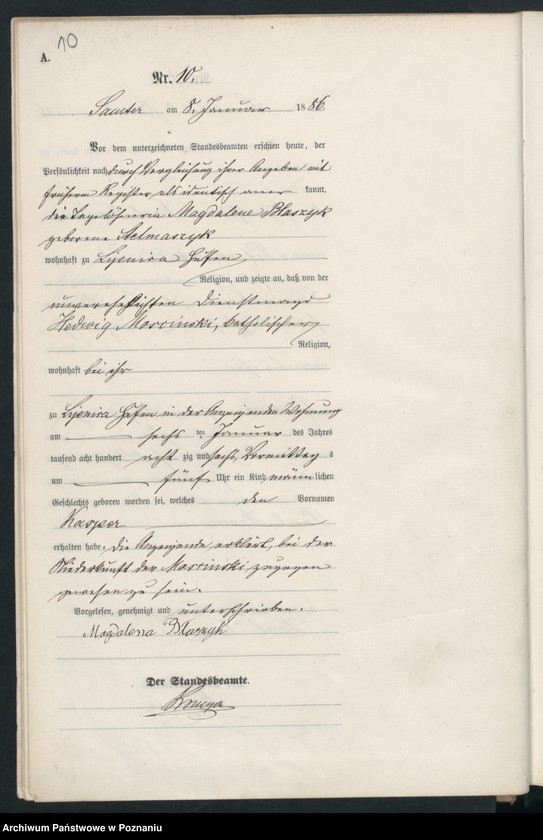 10
A.
Nr. 10.
Samter am 8. Januar 1886.
Vor dem unterzeichneten Standesbeamten erschien heute, der
Persönlichkeit nach durch Vergleichung ihrer Angaben mit
früherem Register als identisch aner kannt,
die Tagelöhnerin Magdalena Blaszyk
geborene Stelmaszyk
wohnhaft zu Lipnica Hufen
Religion, und zeigte an, daß von der
unverehelichten Dienstmagd
Hedwig Marcinski, katholischer
Religion,
wohnhaft bei ihr
zu Lipnica Hufen in der Anzeigenden Wohnung
am sechs ten Januar des Jahres
tausend acht hundert acht zig und sechs, Vormittag s
um fünf Uhr ein Kind männ lichen
Geschlechts geboren worden sei, welches den Vornamen
Kasper
erhalten habe. Die Anzeigende erklärt, bei der
Niederkunft der Marcinski zugegen
gewesen zu sein.
Vorgelesen, genehmigt und unterschrieben.
Magdalena Blaszyk
Der Standesbeamte.
Archiwum Państwowe w Poznaniu